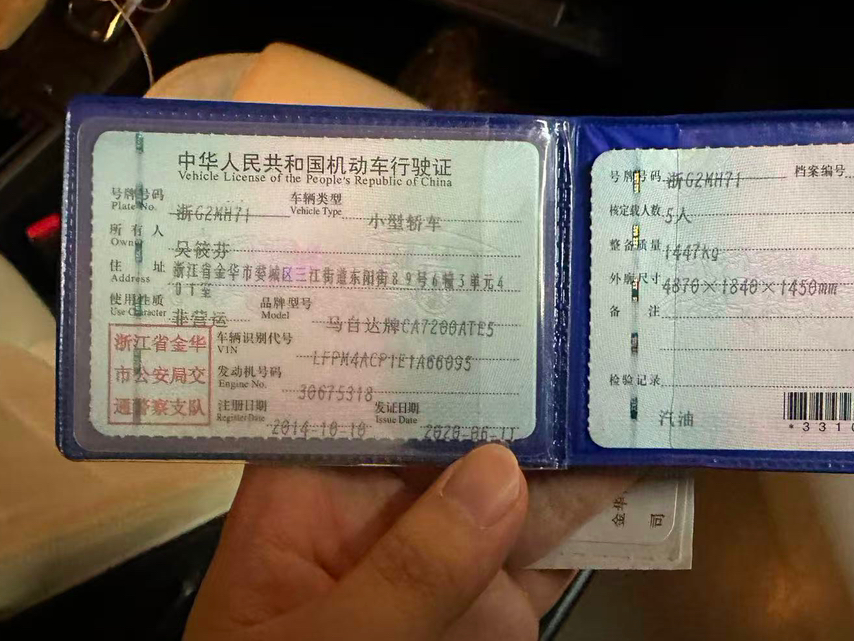 中华人民共和国机动车行驶证
Vehicle License of the People's Republic of China
号牌号码 浙G2MH71 车辆类型 小型轿车
Plate No. Vehicle Type
所有人 吴筱芬
Owner
住址 浙江省金华市婺城区三江街道东阳街89号6幢3单元4
Address 01室
使用性质 非营运 品牌型号 马自达牌CA7200ATE5
Use Character Model
浙江省金华
市公安局交
通警察支队
车辆识别代号 LFPM4ACP1E1A66095
VIN
发动机号码 30675318
Engine No.
注册日期 2014-10-10 发证日期 2020-06-11
Register Date Issue Date
号牌号码 浙G2MH71 档案编号
核定载人数 5人
整备质量 1447kg
外廓尺寸 4870×1840×1450mm
备注
检验记录
汽油
*3310
金华
司